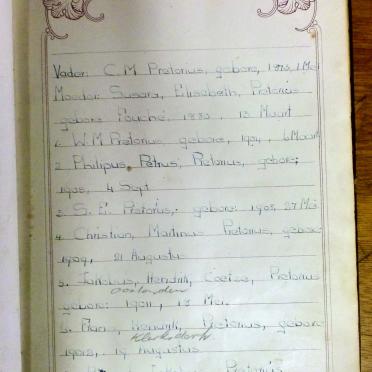 Vader: C. M Pretorius, gebore, 1873, 1 Mei
Moeder Susara, Elisabeth, Pretorius
gebore Fouché, 1880, 13 Maart
1. W. M Pretorius, gebore, 1904, 6 Maart
2 Philipus, Petrus, Pretorius, gebore;
1905, 4 Sept
3. S. E. Pretorius,. gebore: 1907, 27 Mei
4 Christian, Martinus Pretorius, gebore
1909, 21 Augustus
5. Hendrik, Coetse, Pretorius
gebore: 1911, 13 Mei.
6. Hendrik, Pretorius, gebore
Klerksdorp
19 Augustus
Pretorius